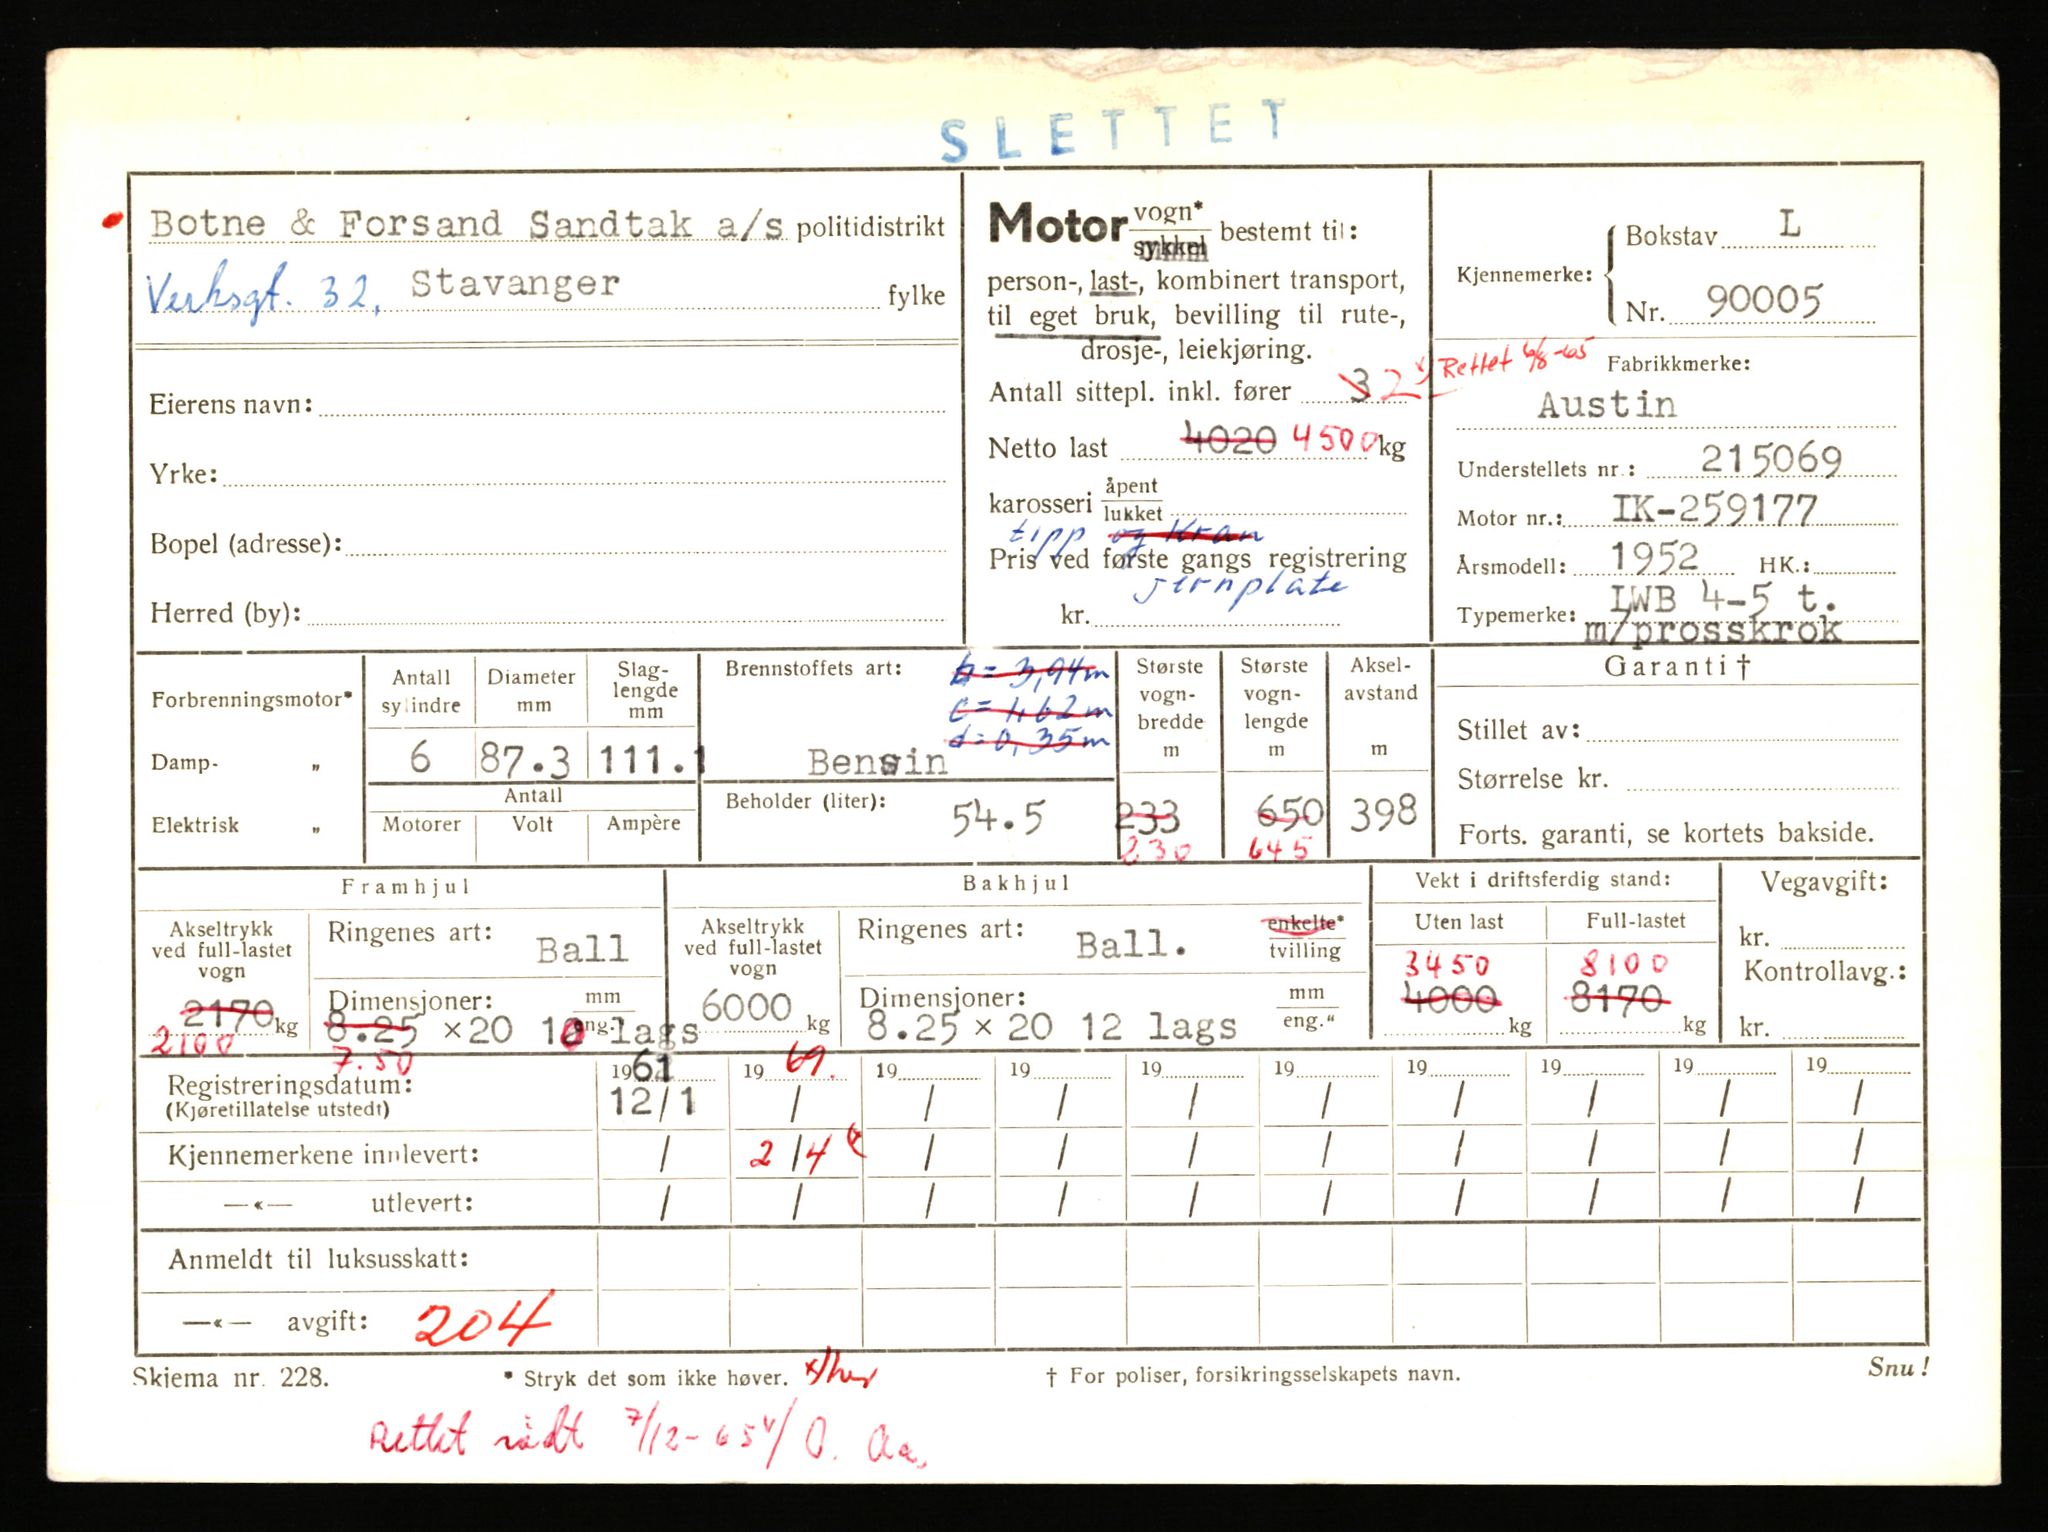 SLETTET
Botne & Forsand Sandtak a/s politidistrikt
Verksgt. 32, Stavanger fylke
Eierens navn:
Yrke:
Bopel (adresse):
Herred (by):
Motor vogn* sykkel bestemt til:
person-, last-, kombinert transport,
til eget bruk, bevilling til rute-,
drosje-, leiekjøring.
Antall sittepl. inkl. fører 3 2 x) Rettet 6/8-65
Netto last 4020 4500 kg
karosseri åpent lukket
tipp og Kran
Pris ved første gangs registrering
jernplate
kr.
Kjennemerke: Bokstav L
Nr. 90005
Fabrikkmerke:
Austin
Understellets nr.: 215069
Motor nr.: IK-259177
Årsmodell: 1952 HK.:
Typemerke: LWB 4-5 t.
m/prosskrok
Forbrenningsmotor*
Damp- „
Elektrisk „
Antall sylindre
6
Diameter mm
87.3
Slag-lengde mm
111.1
Antall
Motorer Volt Ampère
Brennstoffets art:
b = 3,94m
c = 1,62 m
d = 0,35m
Bensin
Beholder (liter): 54.5
Største vogn-bredde m
233
230
Største vogn-lengde m
650
645
Aksel-avstand m
398
Garanti †
Stillet av:
Størrelse kr.
Forts. garanti, se kortets bakside.
Framhjul
Akseltrykk ved full-lastet vogn
2170 kg
2100
Ringenes art: Ball
Dimensjoner: mm eng."
8.25 × 20 10 lags
7.50
Bakhjul
Akseltrykk ved full-lastet vogn
6000 kg
Ringenes art: Ball. enkelte* tvilling
Dimensjoner: mm eng."
8.25 × 20 12 lags
Vekt i driftsferdig stand:
Uten last Full-lastet
3450 8100
4000 kg 8170 kg
Vegavgift:
kr.
Kontrollavg.:
kr.
Registreringsdatum: 1961 1969. 19 19 19 19 19 19 19 19
(Kjøretillatelse utstedt) 12/1 / / / / / / / / /
Kjennemerkene innlevert: / 2/4 / / / / / / / /
—«— utlevert: / / / / / / / / / /
Anmeldt til luksusskatt:
—«— avgift: 204
Skjema nr. 228. * Stryk det som ikke høver. † For poliser, forsikringsselskapets navn. Snu!
Rettet rødt 7/12-65 O. Aa.